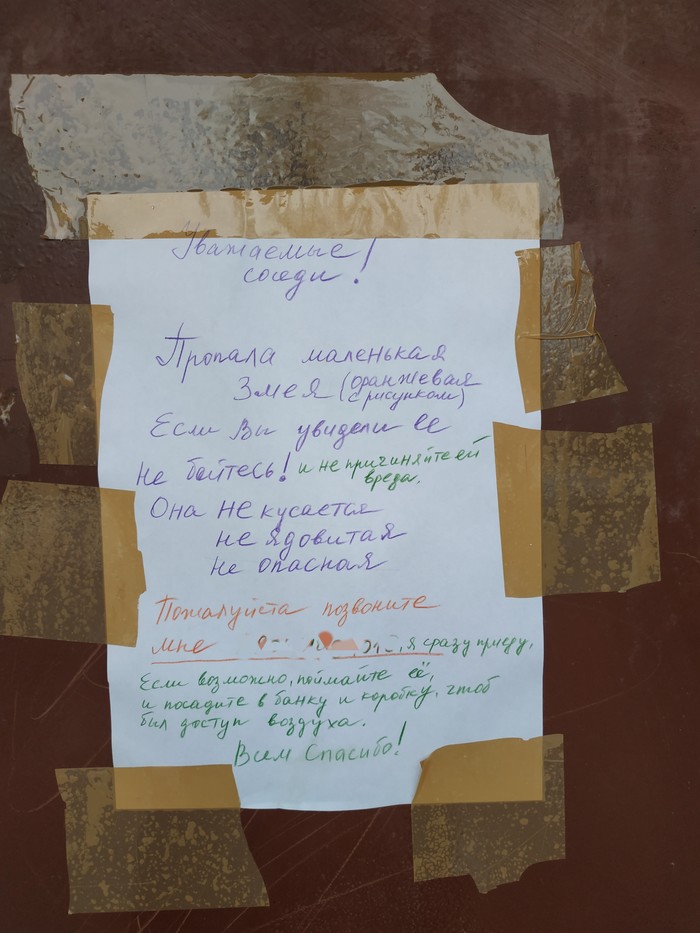 Уважаемые
соседи!
Пропала маленькая
Змея (оранжевая
с рисунком)
Если Вы увидели ее
Не бойтесь! и не причиняйте ей
вреда.
Она не кусается
не ядовитая
не опасная
Пожалуйста позвоните
мне , я сразу приеду,
Если возможно, поймайте её,
и посадите в банку и коробку, чтоб
был доступ воздуха.
Всем Спасибо!